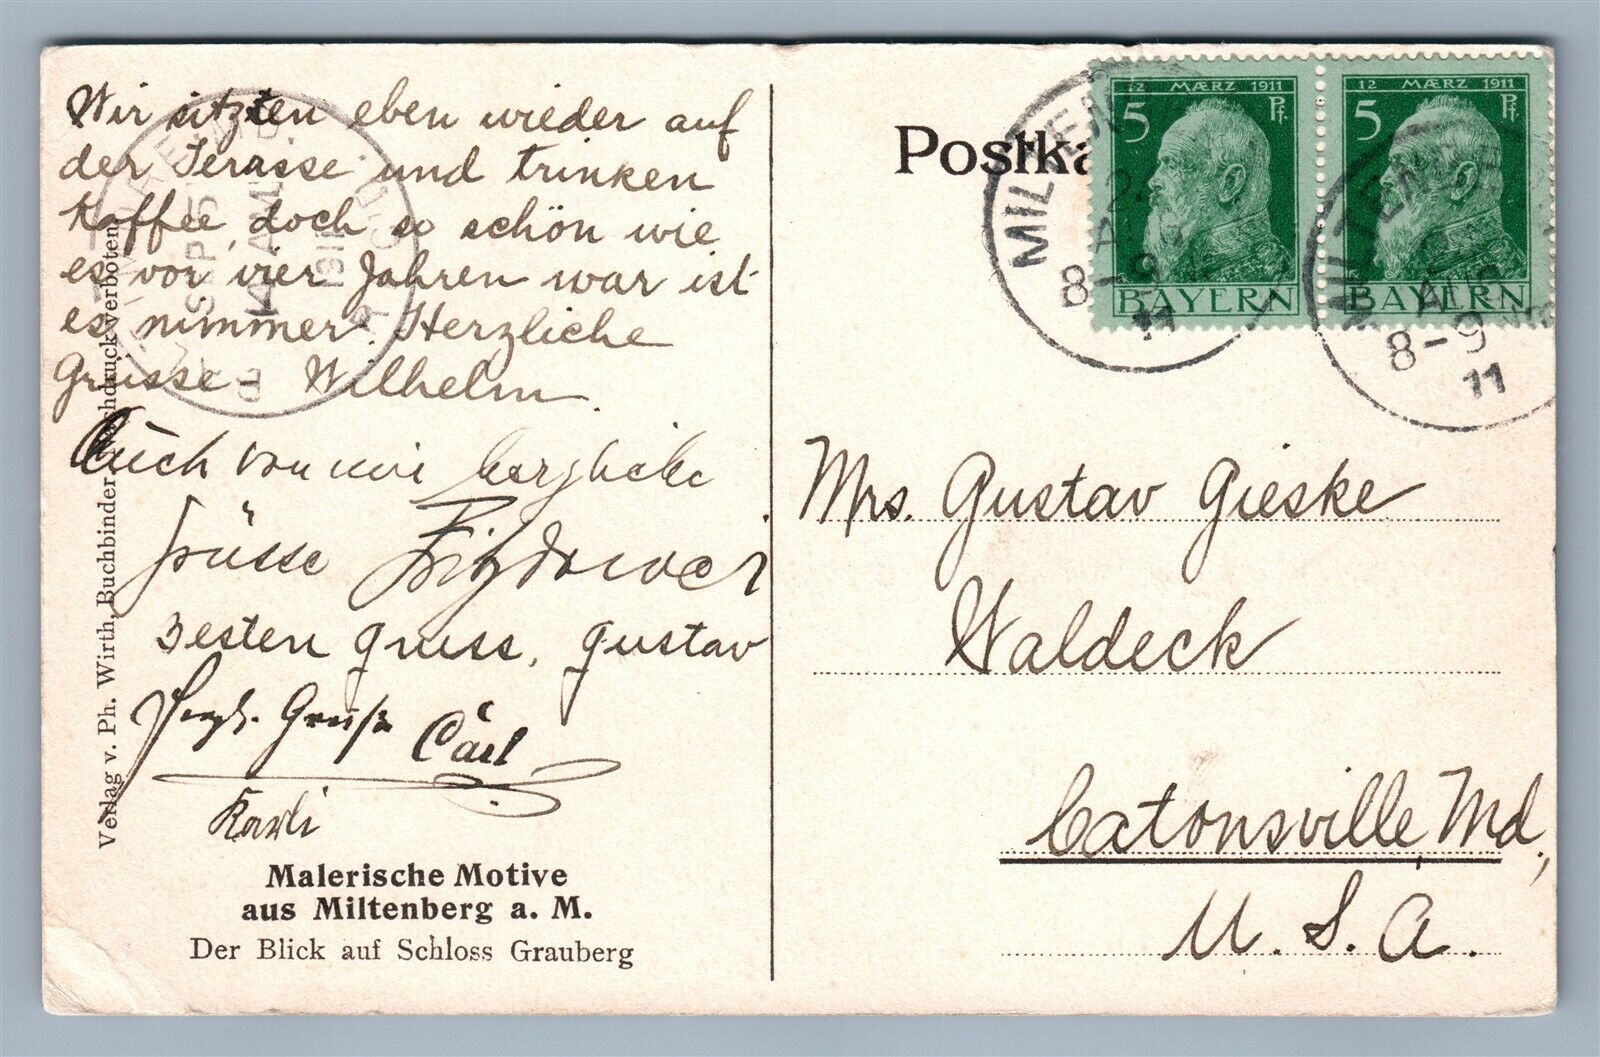 Wir sitzten eben wieder auf
der Terasse und trinken
Kaffee, doch so schön wie
es vor vier Jahren war ist
es nimmer. Herzliche
Grüsse - Wilhelm.
Auch von mir herzliche
Grüsse
Besten Gruss, Gustav
Herzl. Grüße Carl
Karli
Malerische Motive
aus Miltenberg a. M.
Der Blick auf Schloss Grauberg
Verlag v. Ph. Wirth, Buchbinder Nachdruck verboten
SEP 5
AM
1911
Postka
12 MÆRZ 1911
5 Pf.
BAYERN
12 MÆRZ 1911
5 Pf.
BAYERN
MILTENB
AUG
8-9
11
MILTENB
AUG
8-9
11
Mrs. Gustav Gieske
Waldeck
Catonsville, Md,
U. S. A.